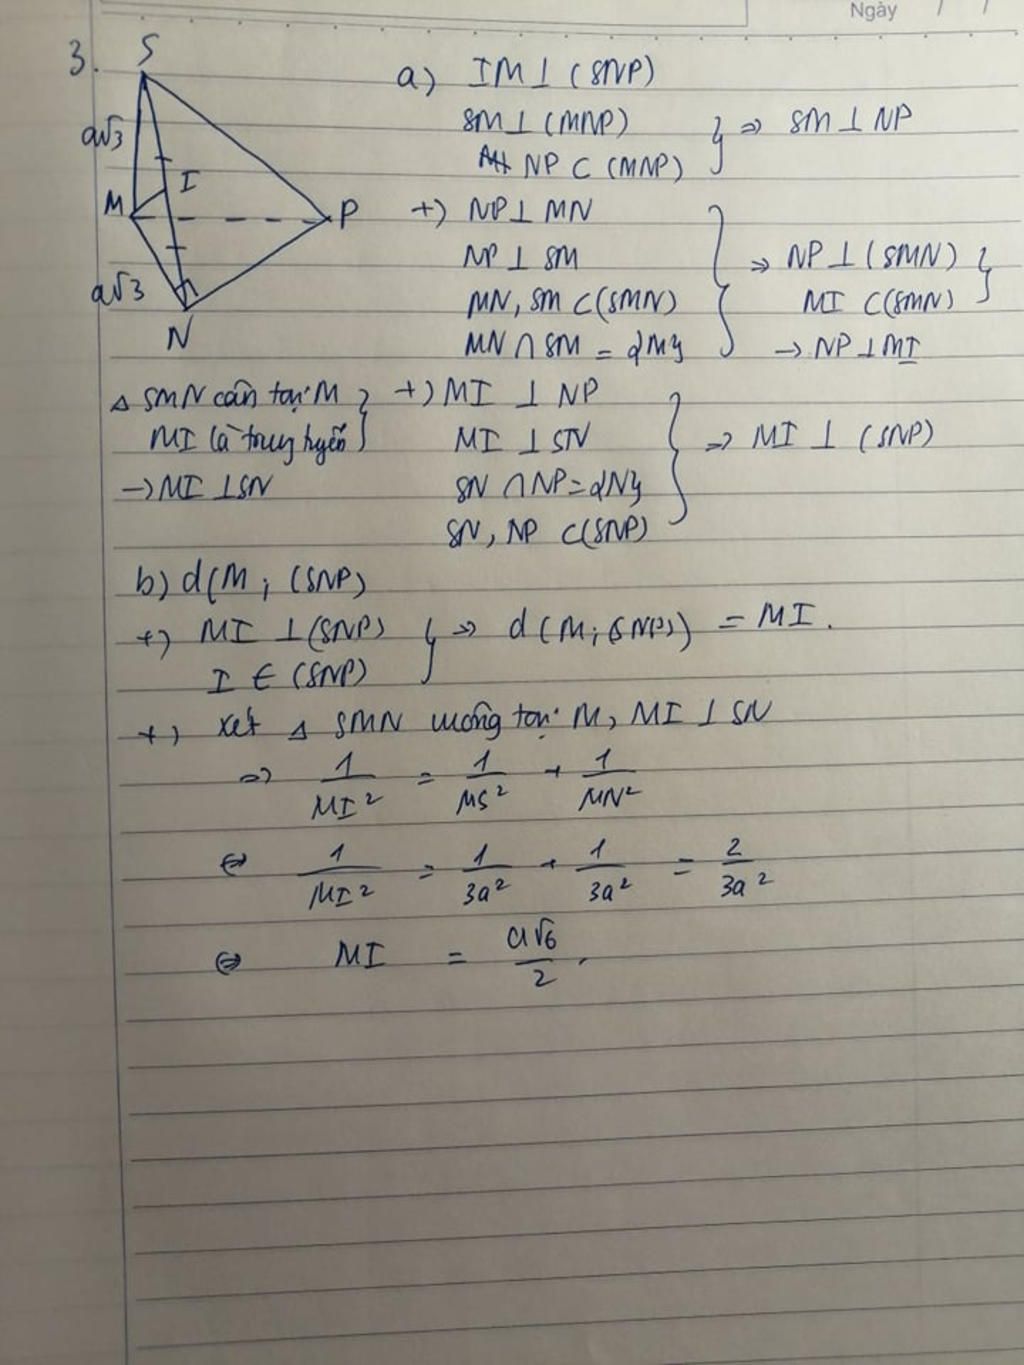 Ngày / /
3.
S
a√3
I
M
P
a√3
N
a) IM ⊥ (SNP)
SM ⊥ (MNP)
NP ⊂ (MNP)
} ⇒ SM ⊥ NP
+) NP ⊥ MN
NP ⊥ SM
MN, SM ⊂ (SMN)
MN ∩ SM = {M}
} ⇒ NP ⊥ (SMN)
MI ⊂ (SMN) }
→ NP ⊥ MI
△ SMN cân tại M
MI là trung tuyến }
→ MI ⊥ SN
+) MI ⊥ NP
MI ⊥ SN
SN ∩ NP = {N}
SN, NP ⊂ (SNP)
} ⇒ MI ⊥ (SNP)
b) d(M; (SNP)
+) MI ⊥ (SNP)
I ∈ (SNP)
} ⇒ d(M; (SNP)) = MI.
+) Xét △ SMN vuông tại M, MI ⊥ SN
⇒ 1/MI² = 1/MS² + 1/MN²
⇔ 1/MI² = 1/3a² + 1/3a² = 2/3a²
⇔ MI = a√6/2.